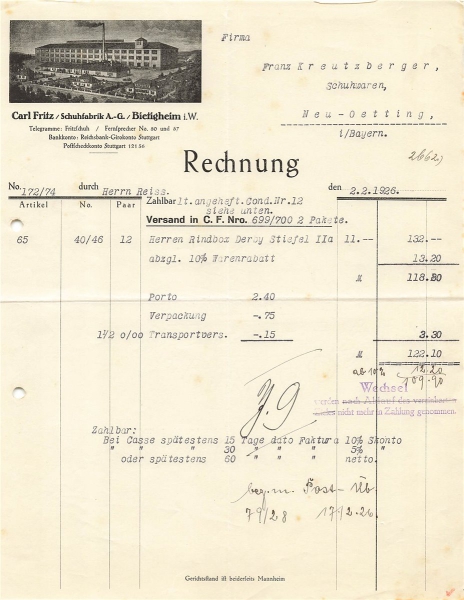 Firma
Franz Kreutzberger,
Schuhwaren,
Neu-Oetting,
i/Bayern.
Carl Fritz / Schuhfabrik A.-G. / Bietigheim i.W.
Telegramme: Fritzschuh / Fernsprecher No. 80 und 87
Bankkonto: Reichsbank-Girokonto Stuttgart
Postscheckkonto Stuttgart 12156
Rechnung
No. 172/74 durch Herrn Reiss. 2.2.1926.
Artikel No. Paar
Zahlbar lt.angeheft.Cond.Nr.12
siehe unten.
Versand in C. F. Nro. 699/700 2 Pakete.
65 40/46 12 Herren Rindbox Derby Stiefel IIa 11.-- 132.--
abzgl. 10% Warenrabatt 13.20
M 118.80
Porto 2.40
Verpackung -.75
1½ o/oo Transportvers. -.15 3.30
M 122.10
ab 10% 12.20
109.90
Wechsel
werden nach Ablauf des
nicht mehr in Zahlung genommen.
Zahlbar:
Bei Casse spätestens 15 Tage dato Faktura 10% Skonto
" " " 30 " " " 5% "
oder spätestens 60 " " " netto.
beg. m. Post-Üb.
79/28 17/2.26.
Gerichtsstand ist beiderseits Mannheim